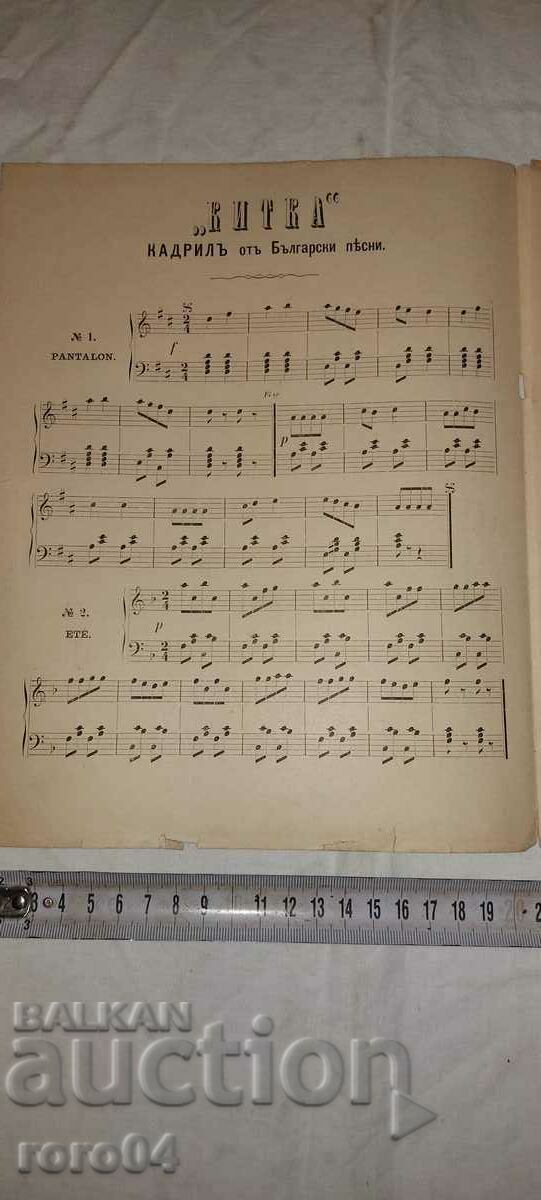 „КИТКА“
КАДРИЛЪ отъ Български пѣсни.
№ 1.
PANTALON.
f
Fine
p
№ 2.
ETÉ.
p
3 4 5 6 7 8 9 11 12 13 14 15 16 17 18 19 20 2
BALKAN
auction
roro04